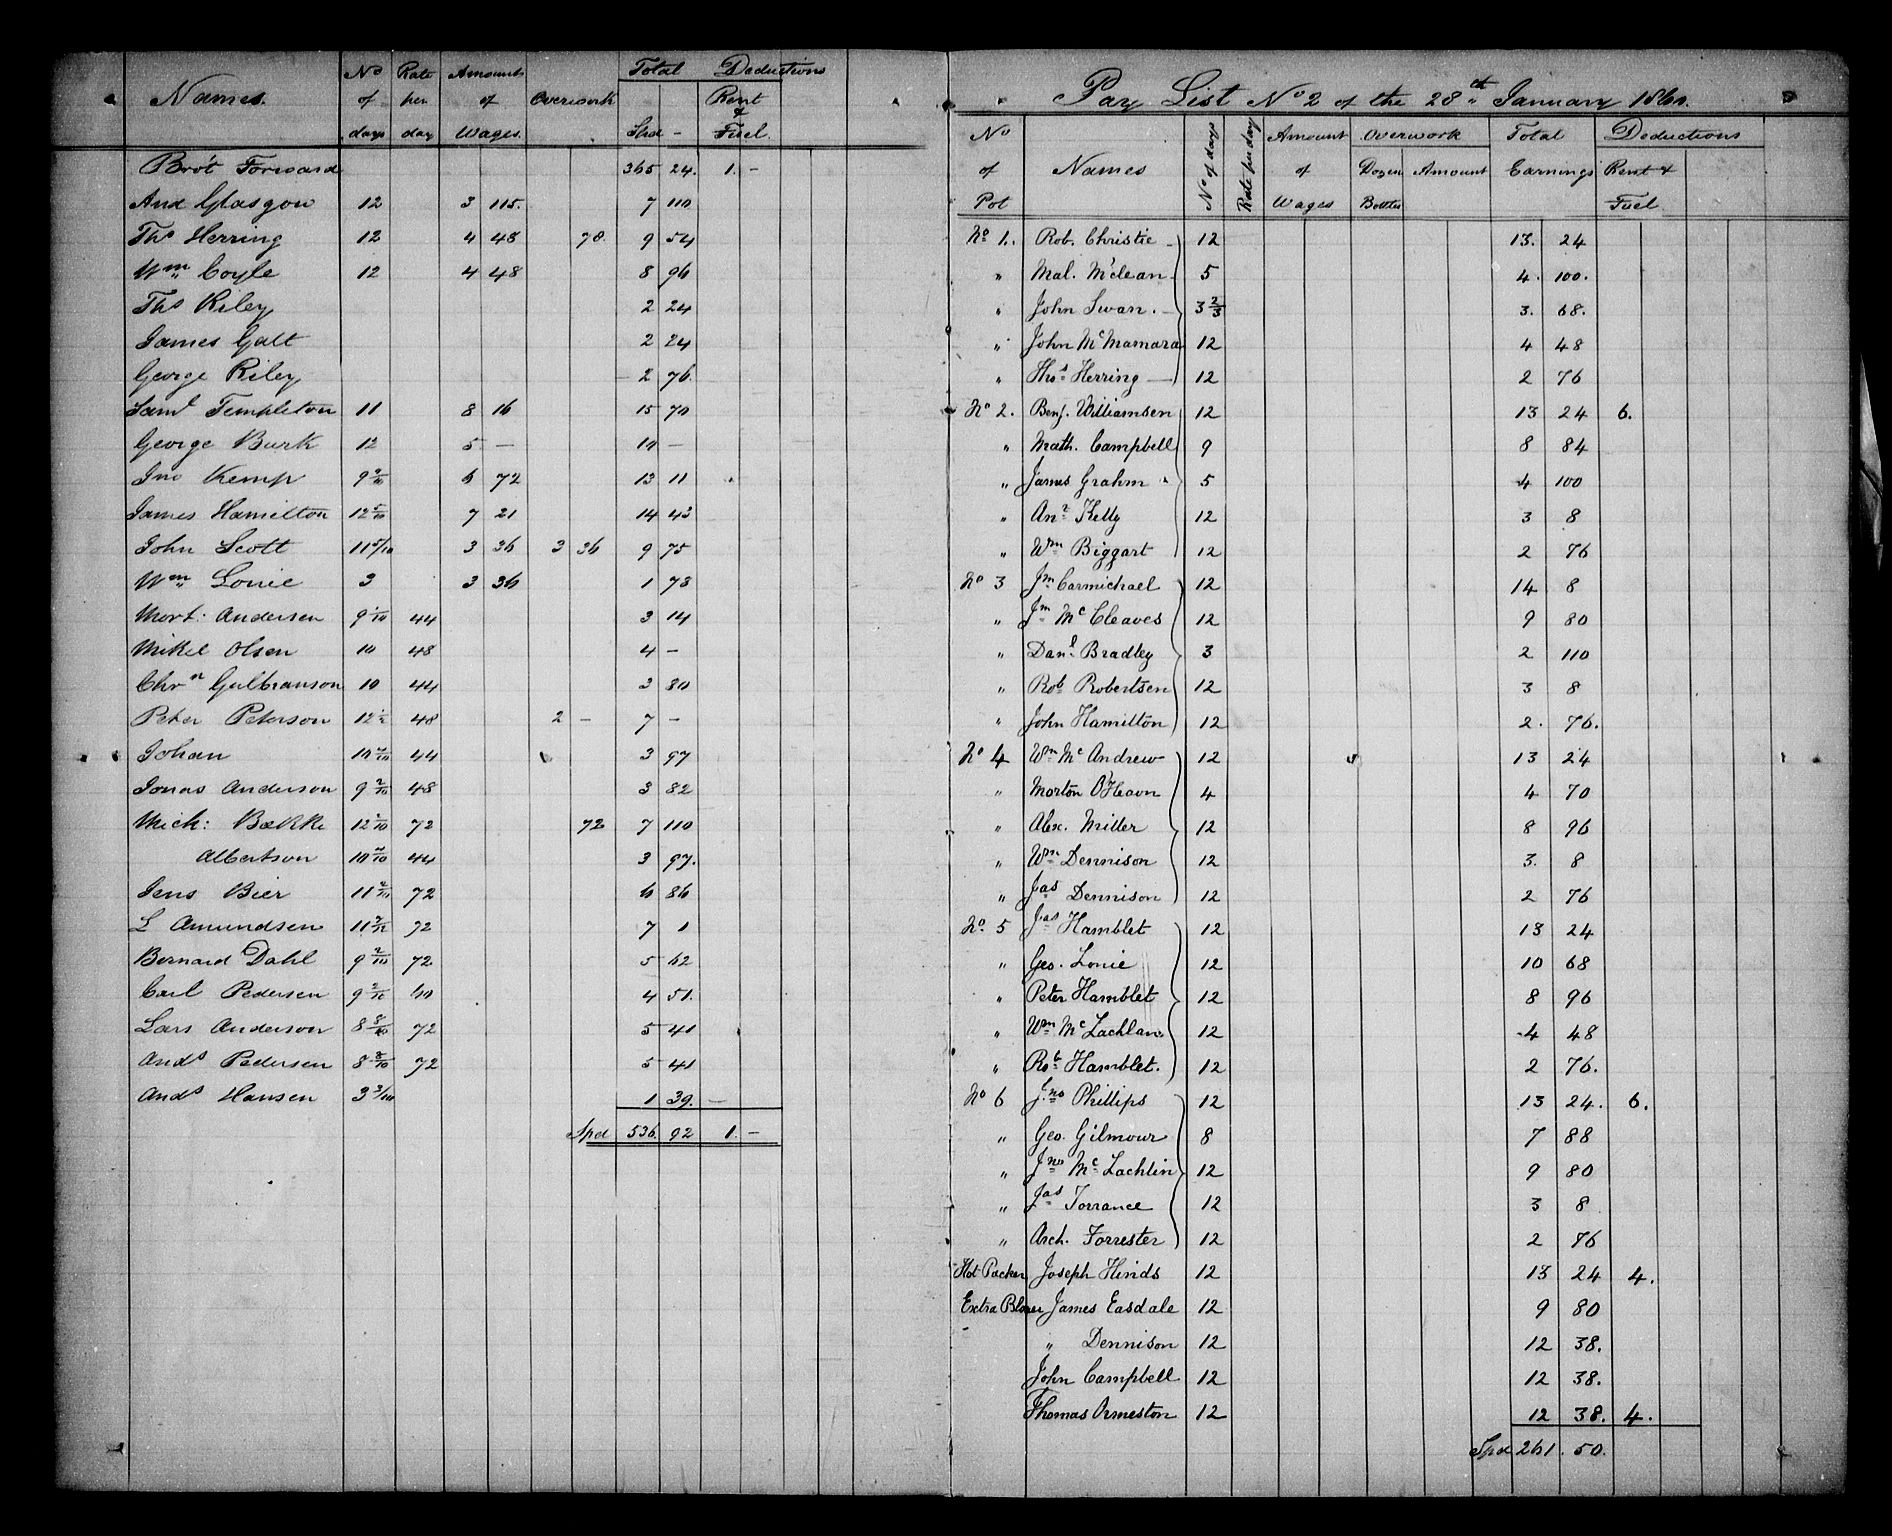 Names. No of days Rate per day Amount of Wages. Overwork Total Spd - Deductions Rent & Fuel.
Brot Forward 365 24. 1. -
And Glasgow 12 3 115. 7 110
Ths Herring 12 4 48 78. 9 54
Wm Coyle 12 4 48 8 96
Ths Riley 2 24
James Galt 2 24
George Riley 2 76.
Saml Templeton 11 8 16 15 70
George Burk 12 5 - 10 -
Jno Kemp 9 2/10 6 72 13 11
James Hamilton 12 5/10 7 21 14 43
John Scott 11 5/10 3 36 3 36 9 75
Wm Lonie 3 3 36 1 78
Mort: Andersen 9 1/10 44 3 14
Mikel Olsen 10 48 4 -
Chrn Gulbranson 10 44 3 80
Peter Peterson 12 1/2 48 2 - 7 -
Johan 10 2/10 44 3 97
Jonas Anderson 9 2/10 48 3 82
Mick: Bække 12 2/10 72 72 7 110
Albertson 10 2/10 44 3 97.
Jens Bier 11 2/10 72 6 86
L Amundsen 11 2/12 72 7 1
Bernard Dahl 9 2/10 72 5 62
Carl Pedersen 9 2/10 60 4 51.
Lars Anderson 8 8/10 72 5 41
Ands Pedersen 8 8/10 72 5 41
Ands Hansen 3 3/10 1 39. -
Spd 536. 92 1. -
Pay List No 2 of the 28th January 1860.
No of Pot Names No of days Rate per day Amount of Wages Overwork Dozen Bottles Amount Total Earnings Deductions Rent & Fuel
No 1. Rob. Christie 12 13. 24
" Mal. Mclean 5 4. 100.
" John Swan. 3 2/3 3. 68.
" John McMamara 12 4 48
" Thos Herring 12 2 76
No 2. Benj. Williamsen 12 13 24 6.
" Math. Campbell 9 8 84
" James Grahm 5 4 100
" Anr Kelly 12 3 8
" Wm Biggart 12 2 76
No 3 Jm Carmichael 12 14. 8
" Jm Mc Cleaves 12 9 80
" Danl Bradley 3 2 110
" Rob Robertsen 12 3 8
" John Hamilton 12 2. 76.
No 4 Wm Mc Andrew 12 13 24
" Morton O'Heavn 4 4 70
" Alex. Miller 12 8 96
" Wm Dennison 12 3. 8
" Jas Dennison 12 2 76
No. 5 Jas Hamblet 12 13 24
" Geo. Lonie 12 10 68
" Peter Hamblet 12 8 96
" Wm McLachlan 12 4 48
" Rob Hamblet. 12 2 76.
No 6 Jno Phillips 12 13 24. 6.
" Geo. Gilmour 8 7 88
" Jno Mc Lachlin 12 9 80
" Jas Torrance 12 3 8
" Arch. Forrester 12 2 76
Hot Packer Joseph Hinds 12 13 24 4.
Extra Blower James Easdale 12 9 80
" Dennison 12 12 38.
John Campbell 12 12 38.
Thomas Ormeston 12 12 38. 4.
Spd 261. 50.